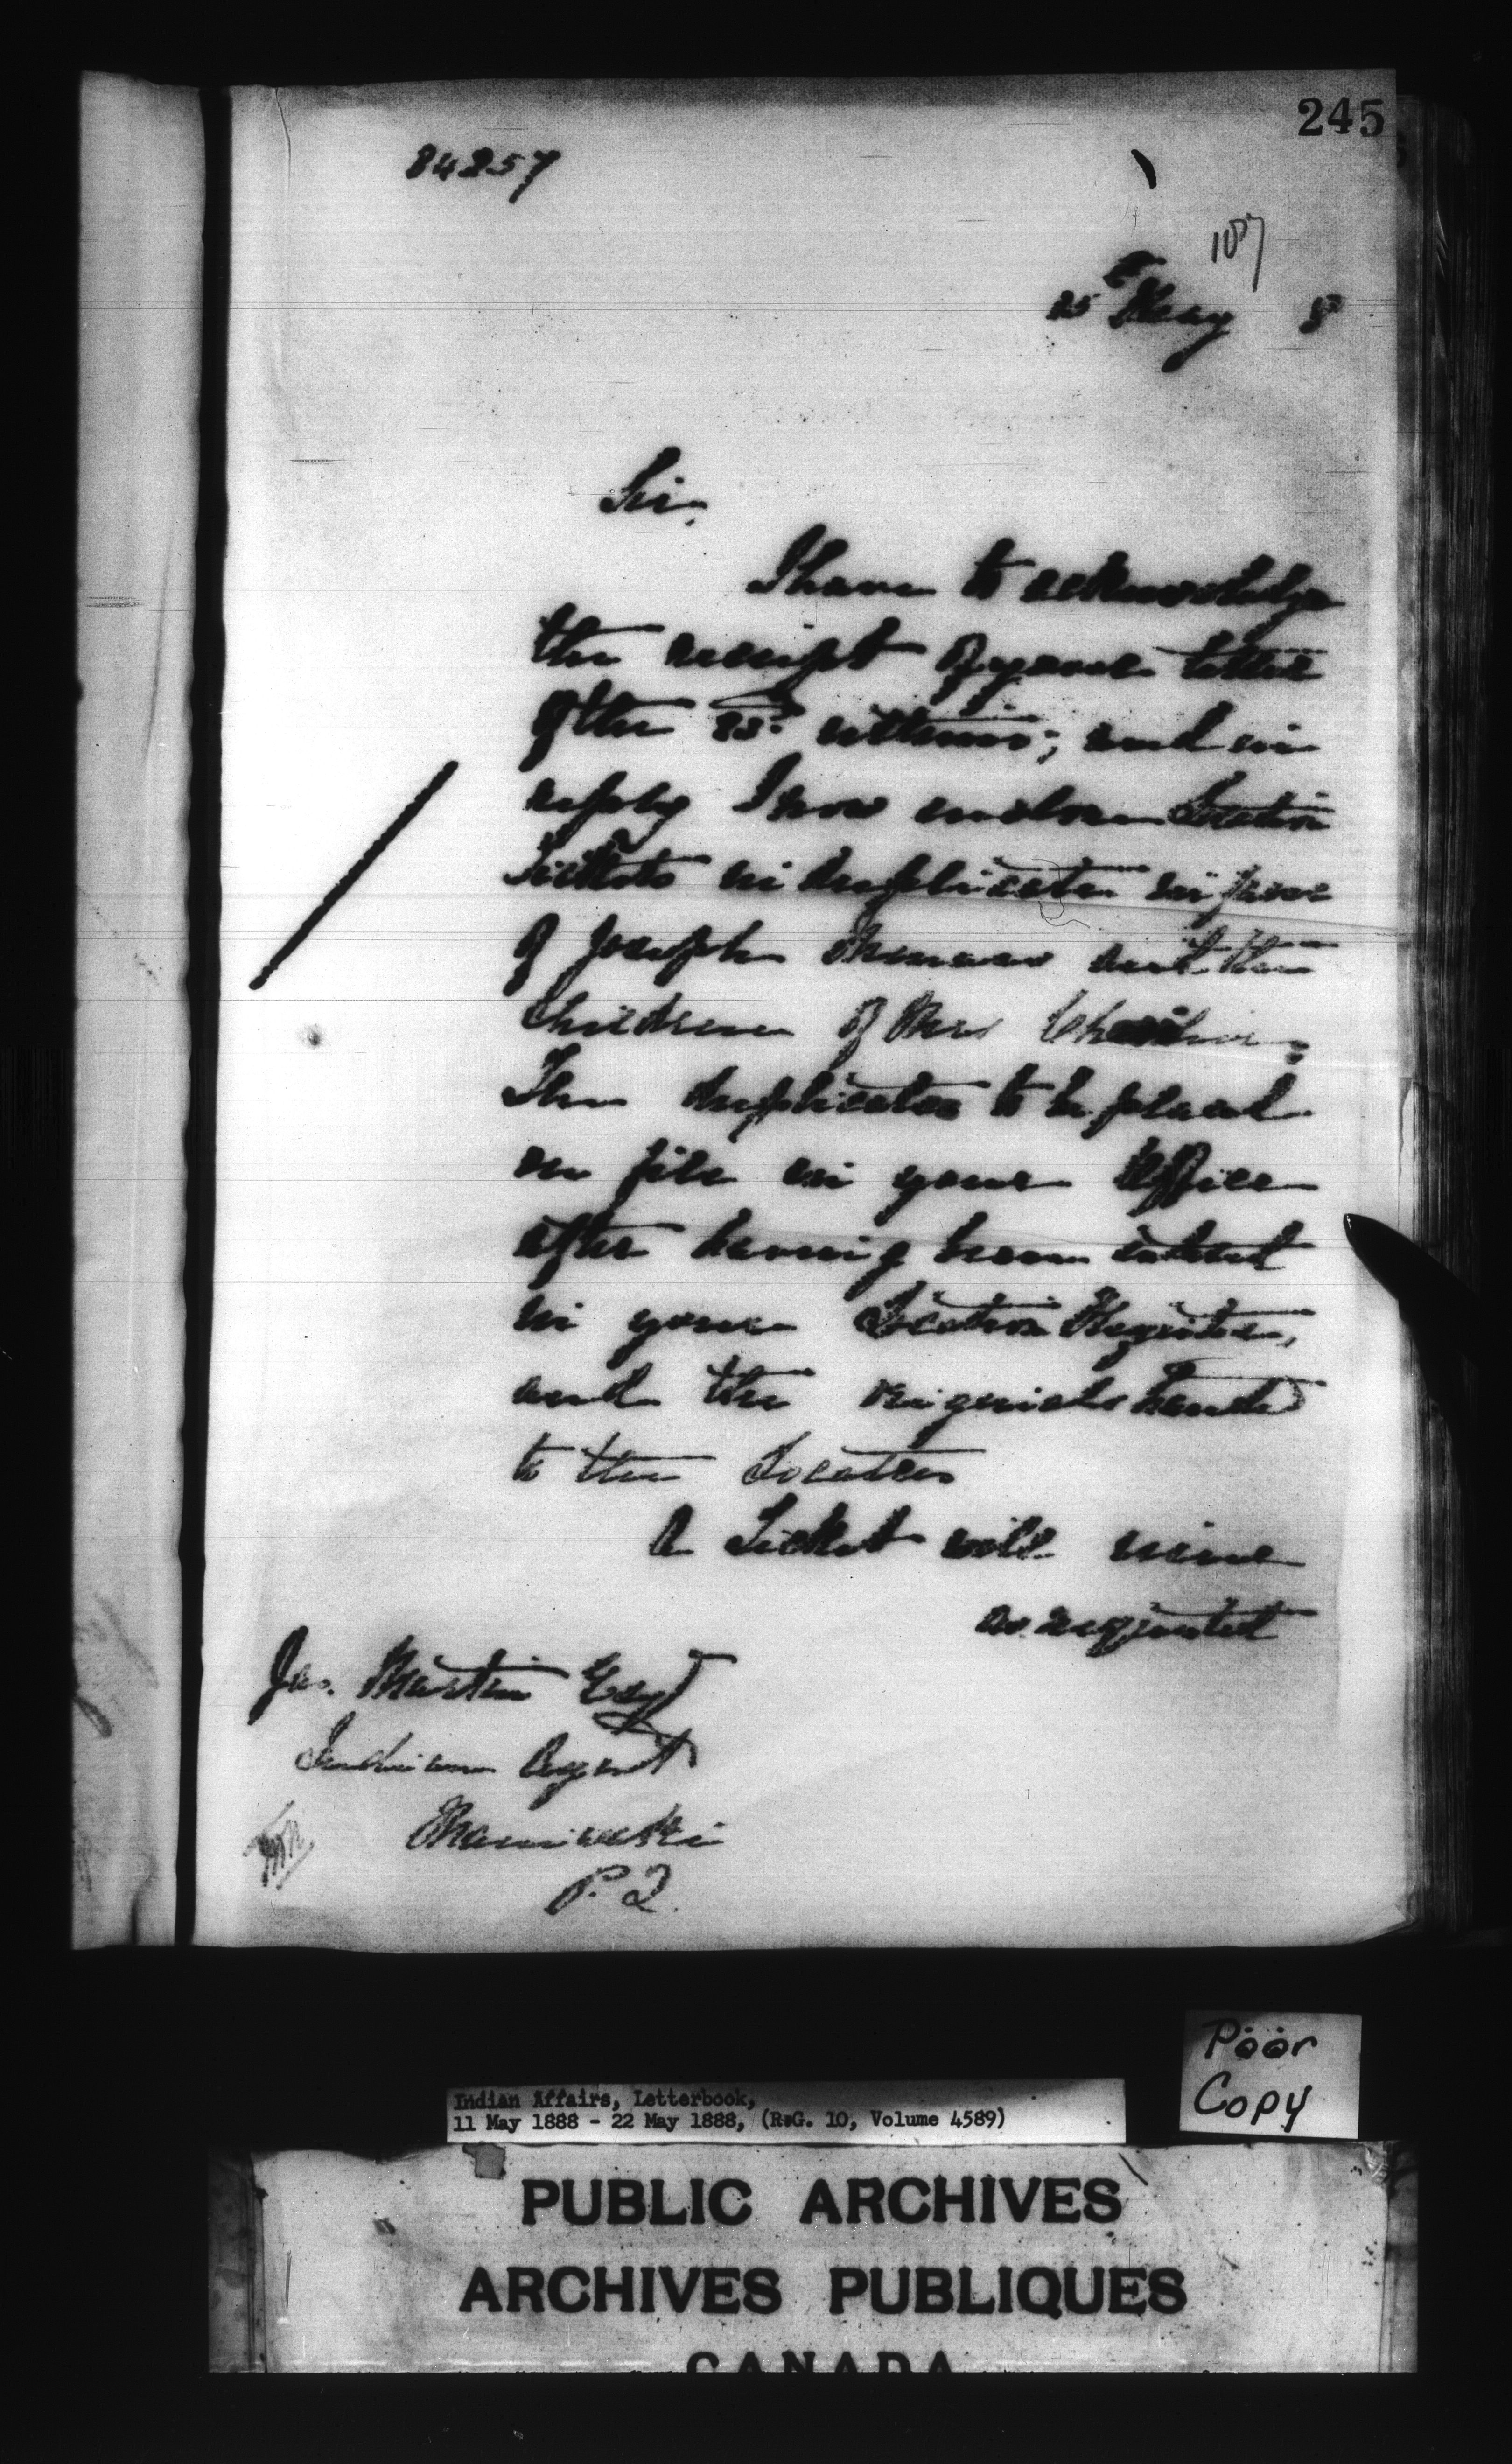 245
84257
107
15th May 8
Sir,
I have to acknowledge
the receipt of your letter
of the ultimo; and in
reply I now enclose Location
Tickets in duplicate in favor
of Joseph and the
children of Mrs
The duplicates to be placed
on file in your Office
after having been entered
in your Location Register,
and the originals handed
to the Locatees
A Ticket will
as requested
Jas. Martin Esq
Indian Agent
Maniwaki
P.Q.
Poor
Copy
Indian Affairs, Letterbook,
11 May 1888 - 22 May 1888, (R.G. 10, Volume 4589)
PUBLIC ARCHIVES
ARCHIVES PUBLIQUES
CANADA